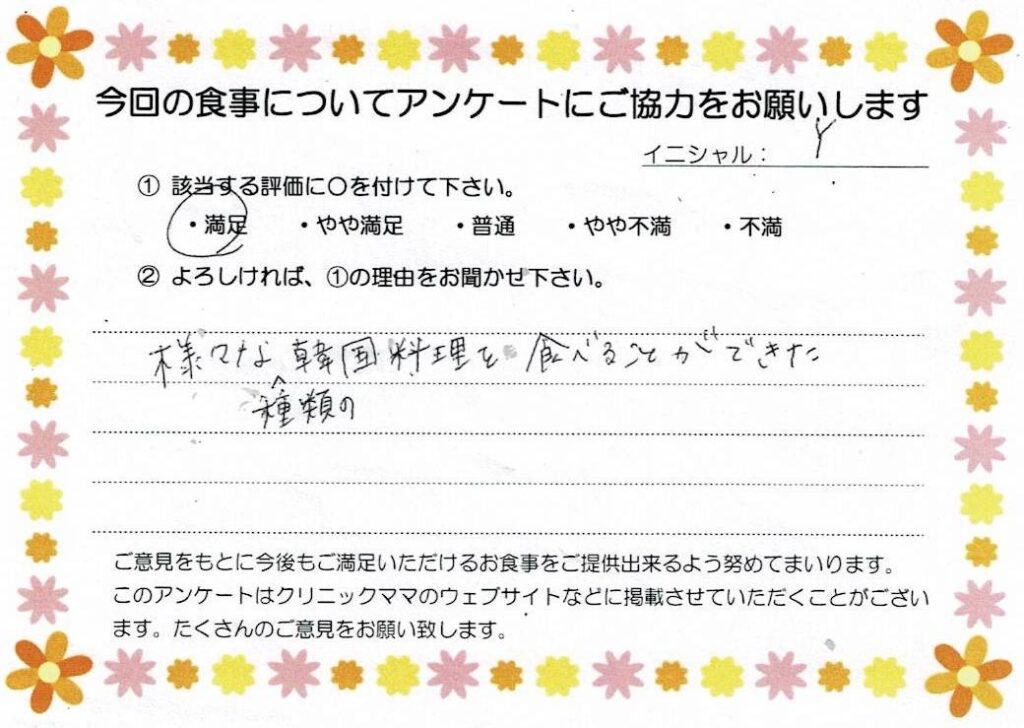 今回の食事についてアンケートにご協力をお願いします
イニシャル： Y
① 該当する評価に〇を付けて下さい。
・満足 ・やや満足 ・普通 ・やや不満 ・不満
② よろしければ、①の理由をお聞かせ下さい。
様々な韓国料理を食べることができた
^種類の
ご意見をもとに今後もご満足いただけるお食事をご提供出来るよう努めてまいります。
このアンケートはクリニックママのウェブサイトなどに掲載させていただくことがござい
ます。たくさんのご意見をお願い致します。